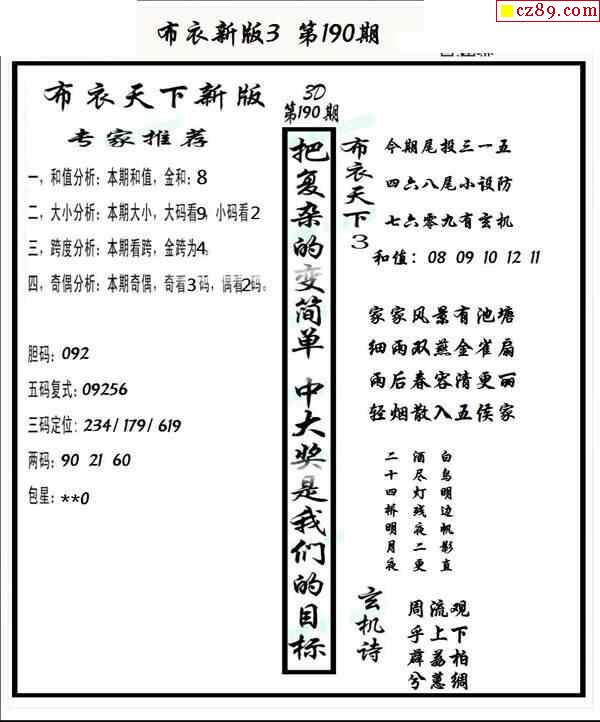 cz89.com
布衣新版3 第190期
布衣天下新版
专家推荐
一，和值分析：本期和值，金和：8
二，大小分析：本期大小，大码看9，小码看2
三，跨度分析：本期看跨，金跨为4。
四，奇偶分析：本期奇偶，奇看3码，偶看2码。
胆码：092
五码复式：09256
三码定位：234/179/619
两码：90 21 60
包星：**0
3D
第190期
把复杂的变简单 中大奖是我们的目标
布衣天下3
今期尾投三一五
四六八尾小设防
七六零九有玄机
和值：08 09 10 12 11
家家风景有池塘
细雨双燕金雀扇
雨后春容清更丽
轻烟散入五侯家
白鸟明边帆影直
酒尽灯残夜二更
二十四桥明月夜
玄机诗
周流观
乎上下
薜荔柏
兮蕙绸